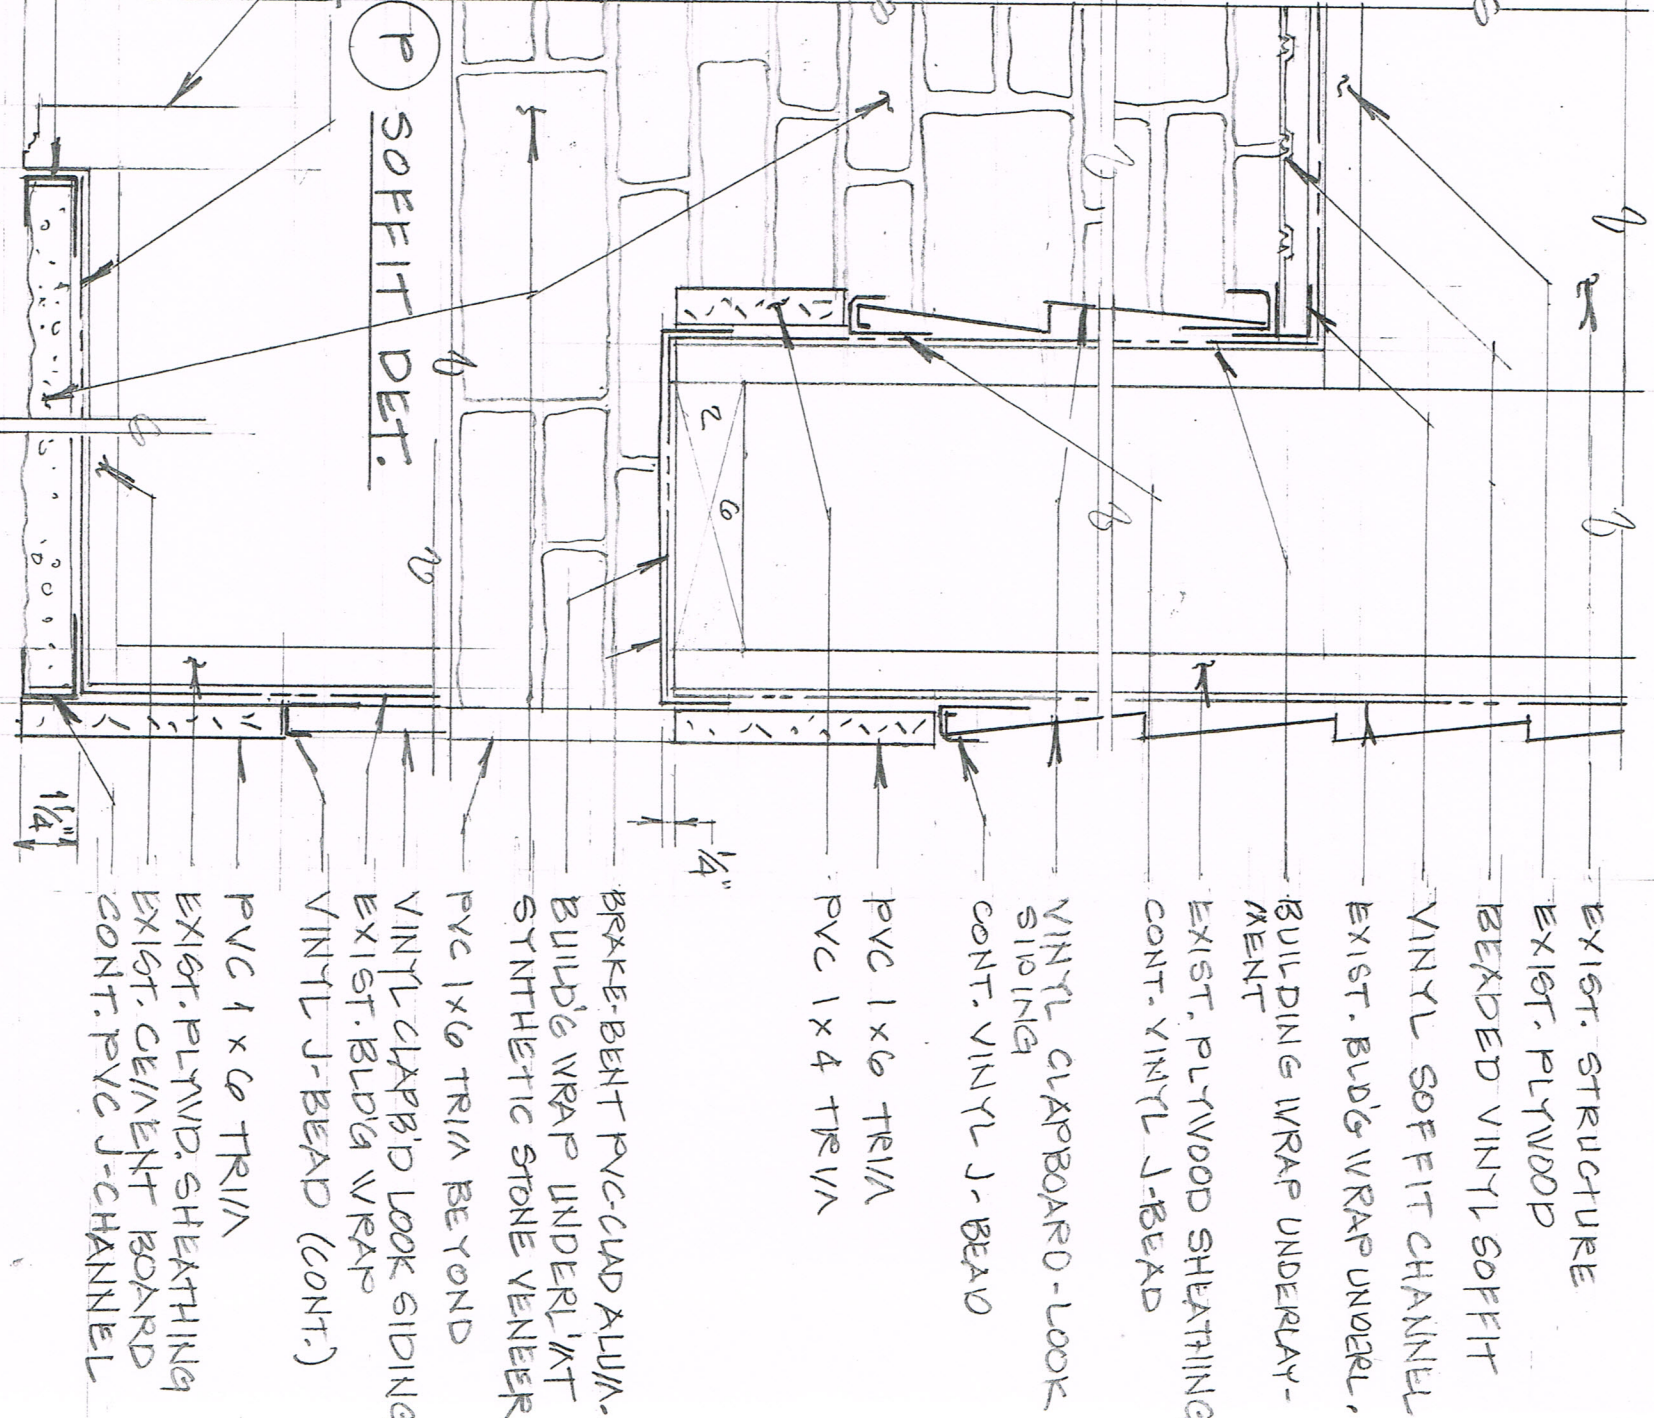 EXIST. STRUCTURE
EXIST. PLYWOOD
BEADED VINYL SOFFIT
VINYL SOFFIT CHANNEL
EXIST. BLD'G WRAP UNDERL.
BUILDING WRAP UNDERLAY-
MENT
EXIST. PLYWOOD SHEATHING
CONT. VINYL J-BEAD
VINYL CLAPBOARD-LOOK
SIDING
CONT. VINYL J-BEAD
PVC 1x6 TRIM
PVC 1x4 TRIM
1/4"
2 6
BRAKE-BENT PVC-CLAD ALUM.
BUILD'G WRAP UNDERL'MT
SYNTHETIC STONE VENEER
PVC 1x6 TRIM BEYOND
VINYL CLAPB'D LOOK SIDING
EXIST. BLD'G WRAP
VINYL J-BEAD (CONT.)
PVC 1x6 TRIM
EXIST. PLYWD. SHEATHING
EXIST. CEMENT BOARD
CONT. PVC J-CHANNEL
1 1/4"
P SOFFIT DET.